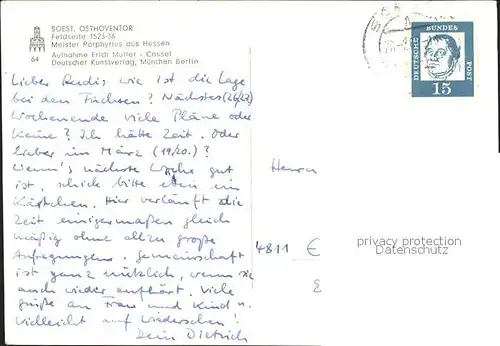 SOEST. OSTHOVENTOR
Feldseite 1523-36
Meister Porphyrius aus Hessen
Aufnahme Erich Müller - Cassel
Deutscher Kunstverlag, München Berlin
64
DEUTSCHE BUNDES POST
15
Lieber Rudi, wie ist die Lage
bei den Füchsen? Nächstes (26/27)
Wochenende viele Pläne oder
keine? Ich hätte Zeit. Oder
lieber im März (19/20.)?
Wenn's nächste Woche gut
ist, schick bitte eben ein
Kärtchen. Hier verläuft die
Zeit einigermaßen gleich
mäßig ohne allzu große
Aufregungen. Gemeinschaft
ist ganz nützlich, wenn sie
auch wieder aufhört. Viele
Grüße an Frau und Kind u.
vielleicht auf Wiedersehen!
Dein Dietrich
Herrn
4811 E
privacy protection
Datenschutz
E